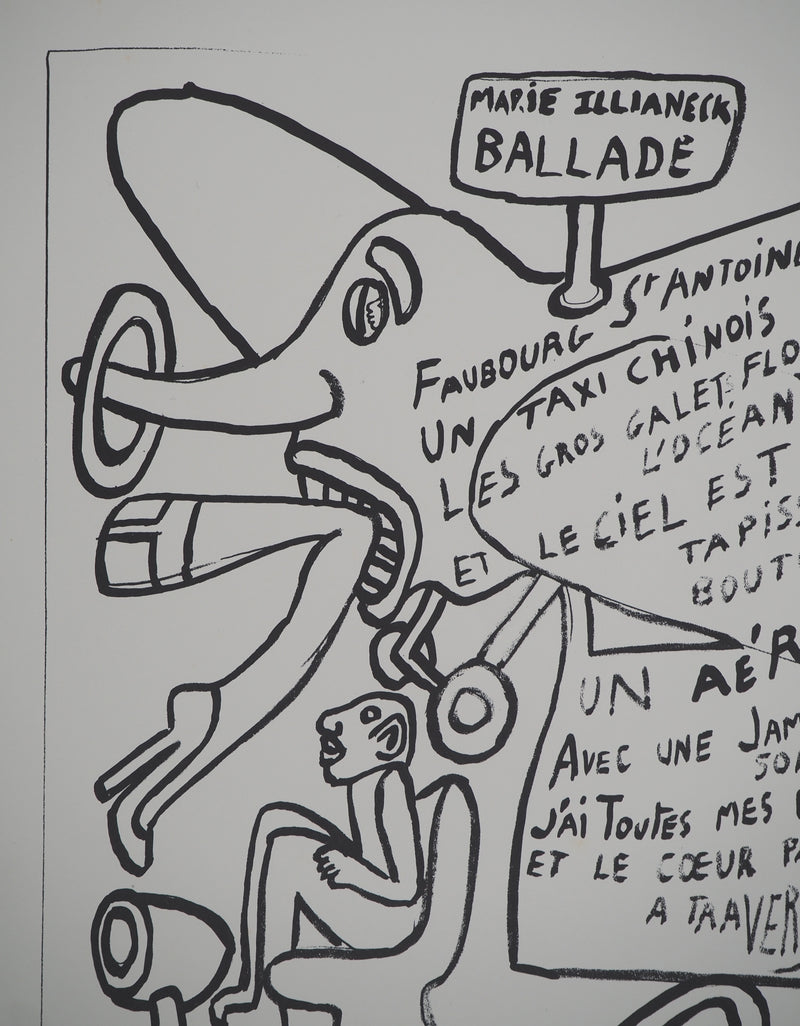 MARIE ILLIANECK
BALLADE
FAUBOURG St ANTOINE
UN TAXI CHINOIS
LES GROS GALET. FLO
L'OCEAN
ET LE CIEL EST
TAPISS
BOUT
UN AÉR
AVEC UNE JAM
SO
J'AI TOUTES MES
ET LE CŒUR PA
A TRAVER